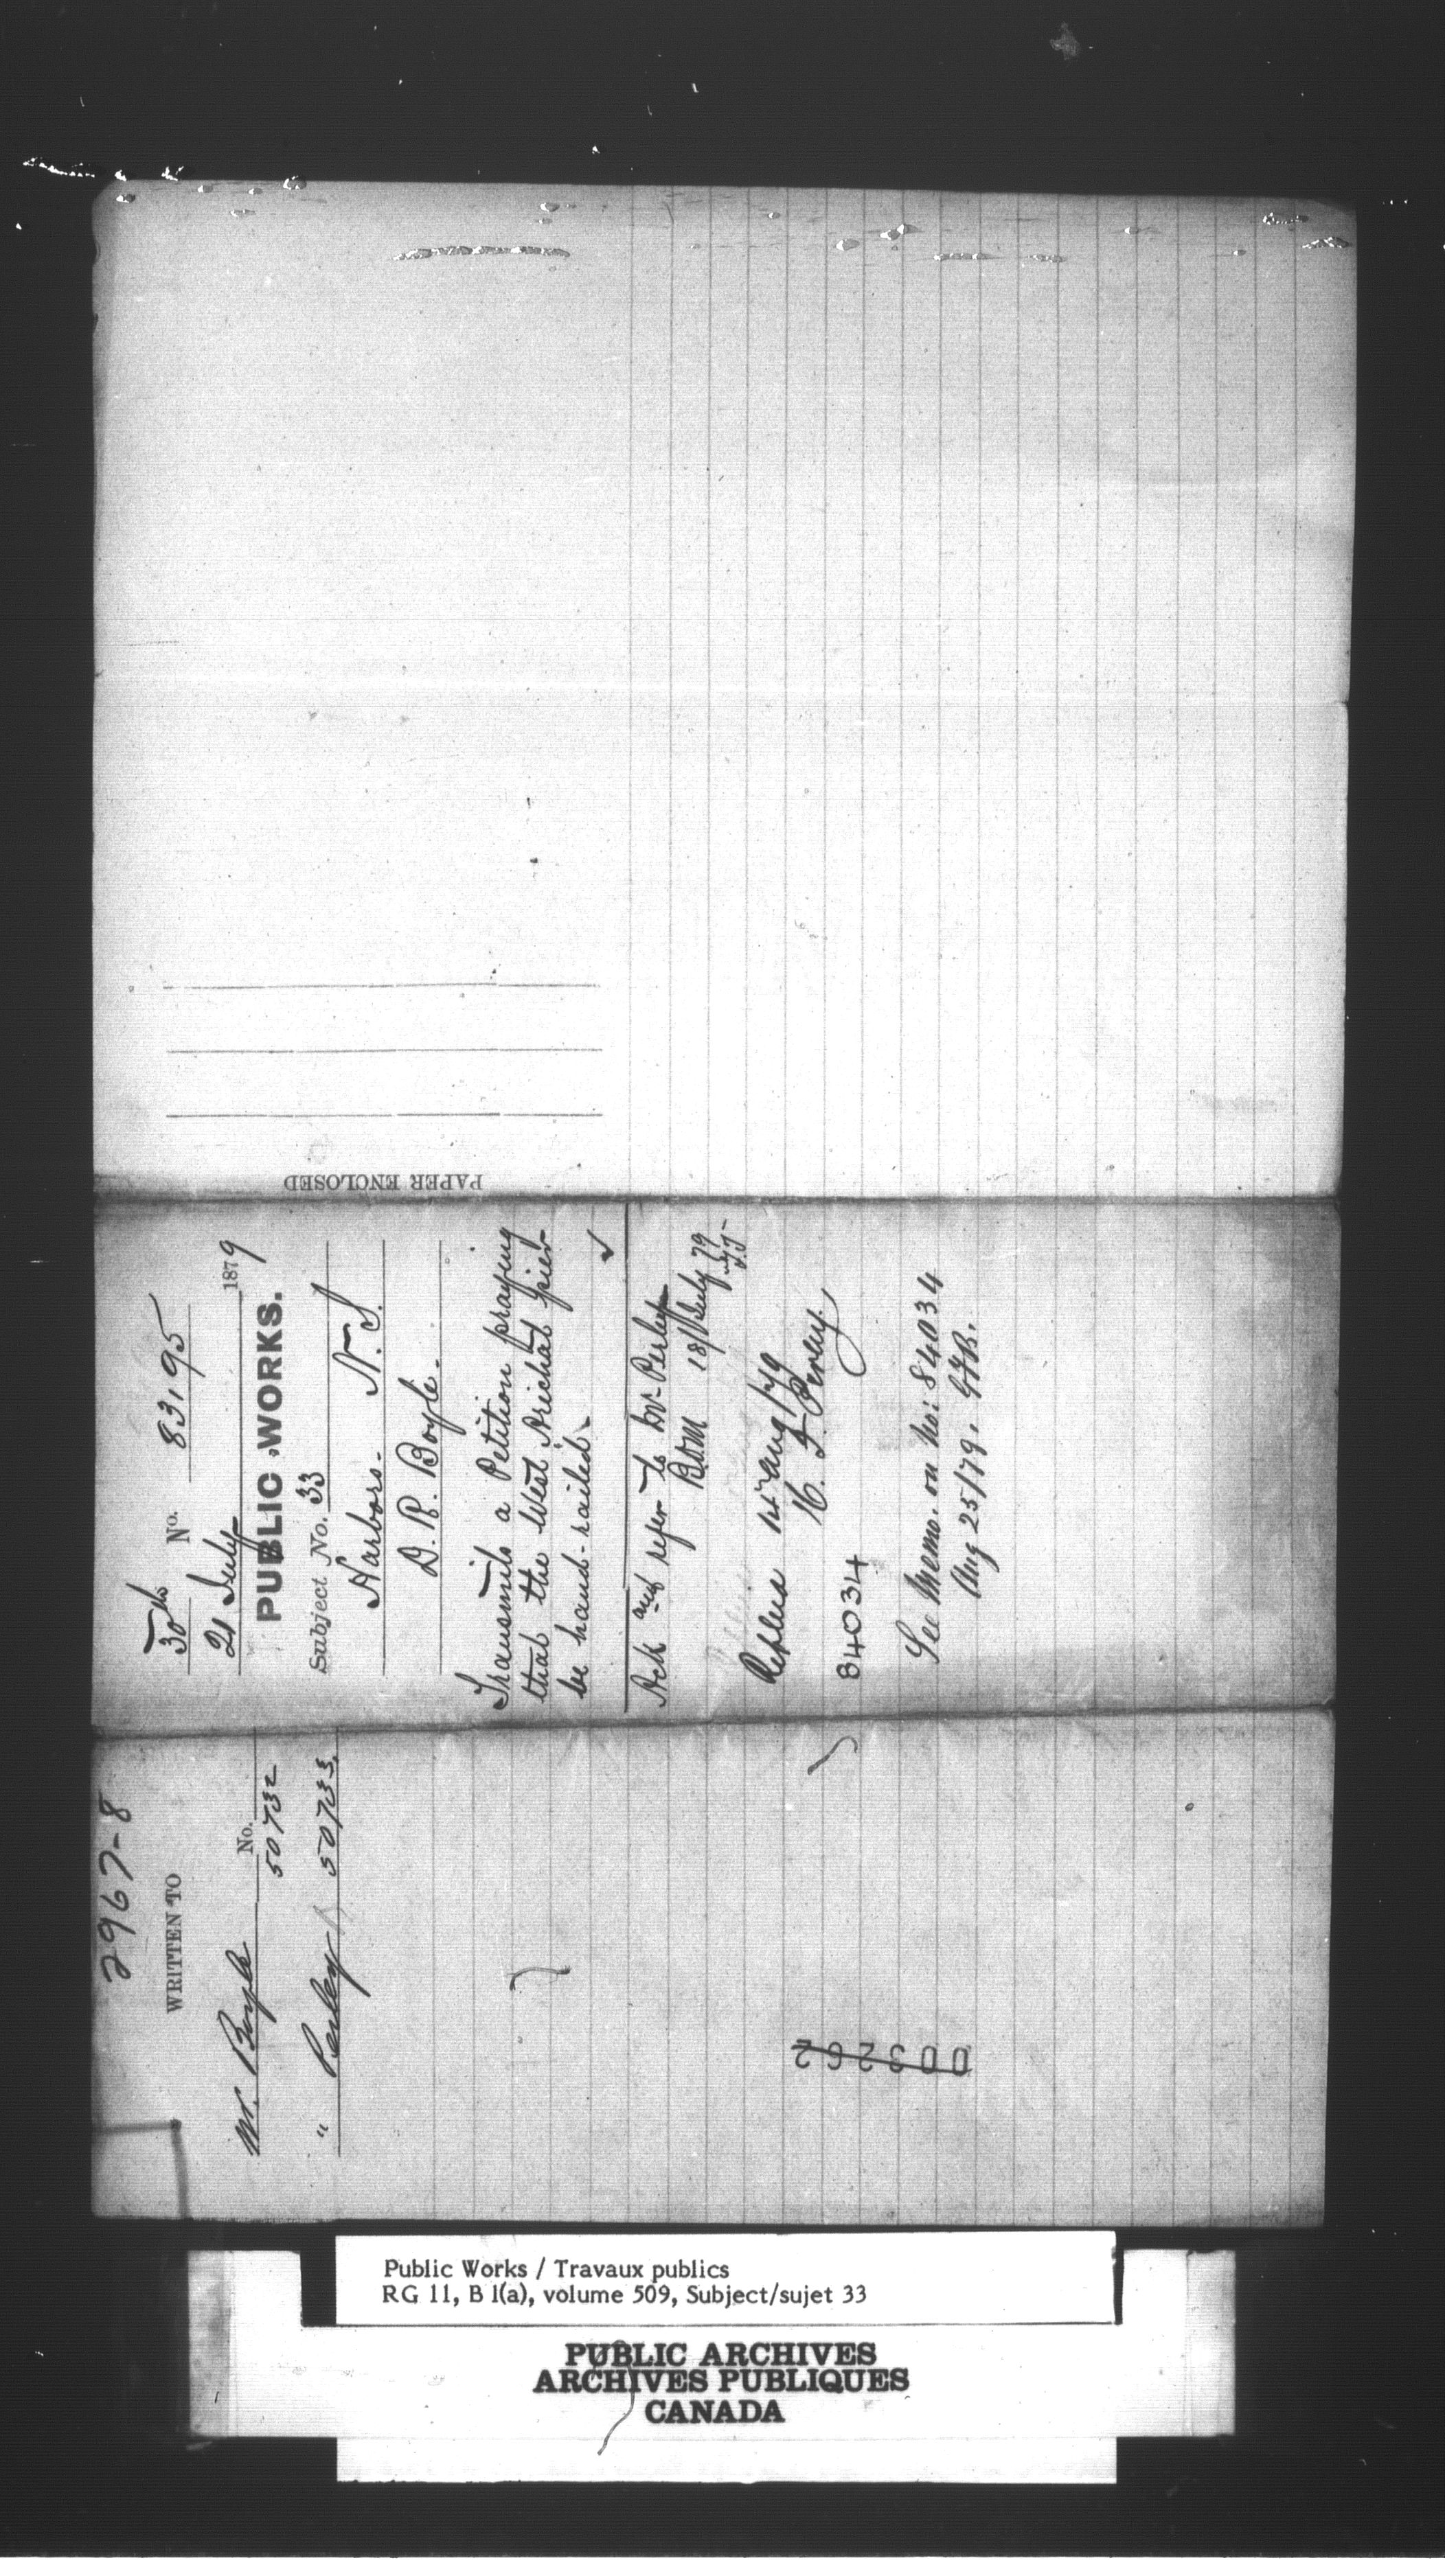 2967-8
WRITTEN TO
No.
Mr. Boyle 50732
" Perley 50733
003262
30th No. 83195
21 July 1879
PUBLIC WORKS.
Subject No. 33
Harbors. N.S.
D. R. Boyle.
Transmits a Petition praying
that the West Arichat pier
be hand-railed.
Ack and refer to Mr Perley
18 July 79
Replied Aug /79
84034
See Memo. on No: 84034
Aug 25/79.
PAPER ENCLOSED
Public Works / Travaux publics
RG 11, B 1(a), volume 509, Subject/sujet 33
PUBLIC ARCHIVES
ARCHIVES PUBLIQUES
CANADA